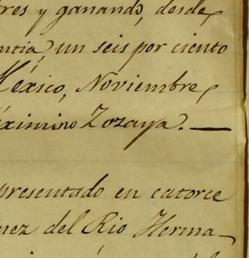 res y ganando, desde
un seis por ciento
México, Noviembre
Zozaya. —
presentado en catorce
nez del Rio Herma-